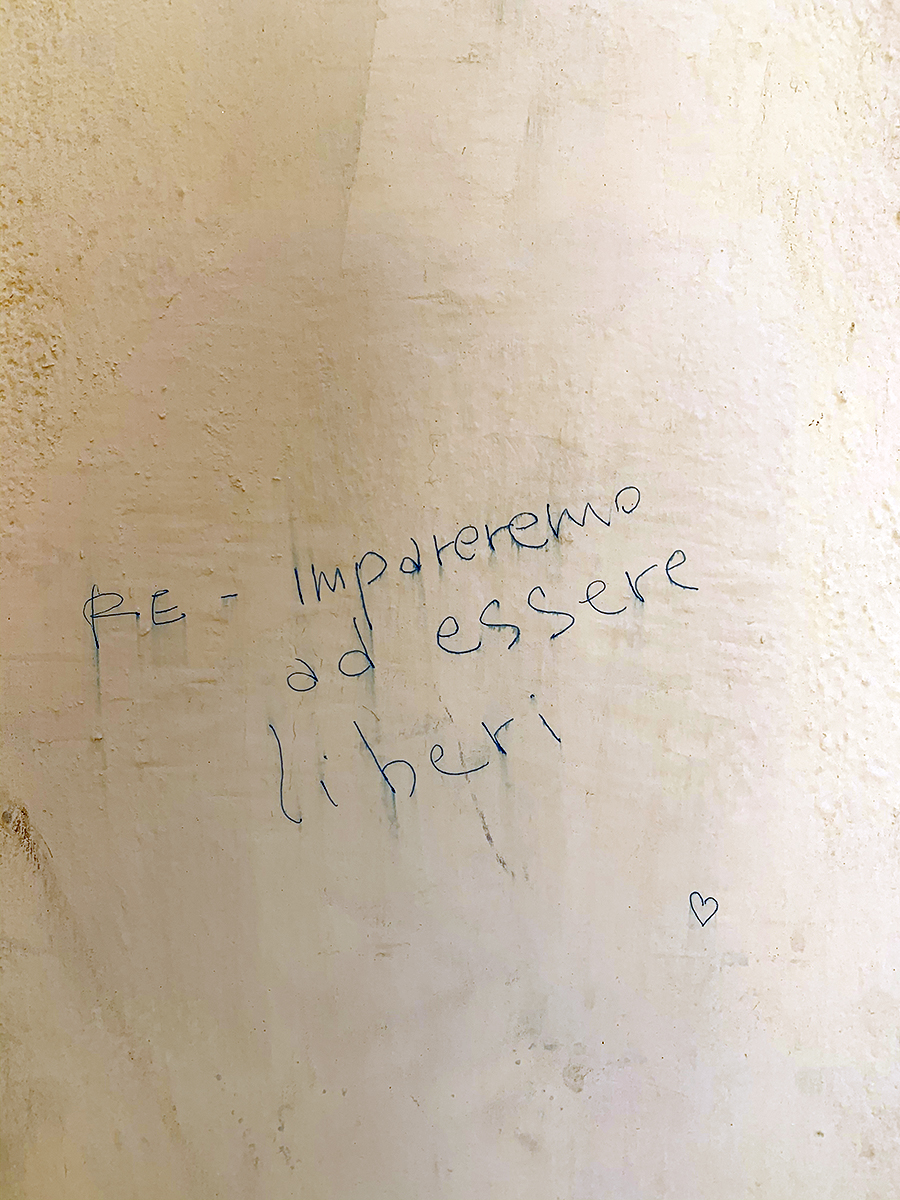 RE - Impareremo
ad essere
liberi